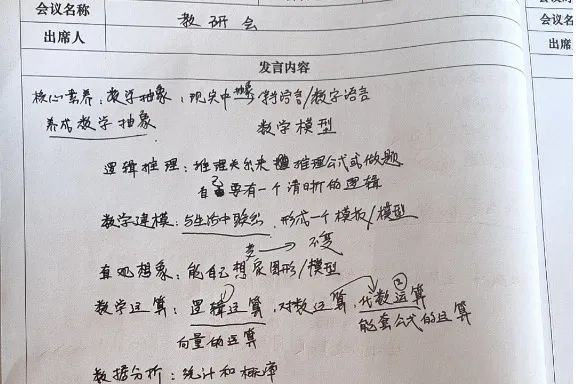 会议名称 教研会 会议
出席人 出席
发言内容
核心素养：数学抽象：现实中抽象 符号语言/数字语言
养成数学抽象 数学模型
逻辑推理：推理关系来 推理公式或做题
自己要有一个清晰的逻辑
数学建模：与生活中联系，形成一个模板/模型
变 → 不变
直观想象：能自己想象图形/模型
数学运算：逻辑运算，对数运算，代数运算 ②
向量的运算 能套公式的运算
数据分析：统计和概率